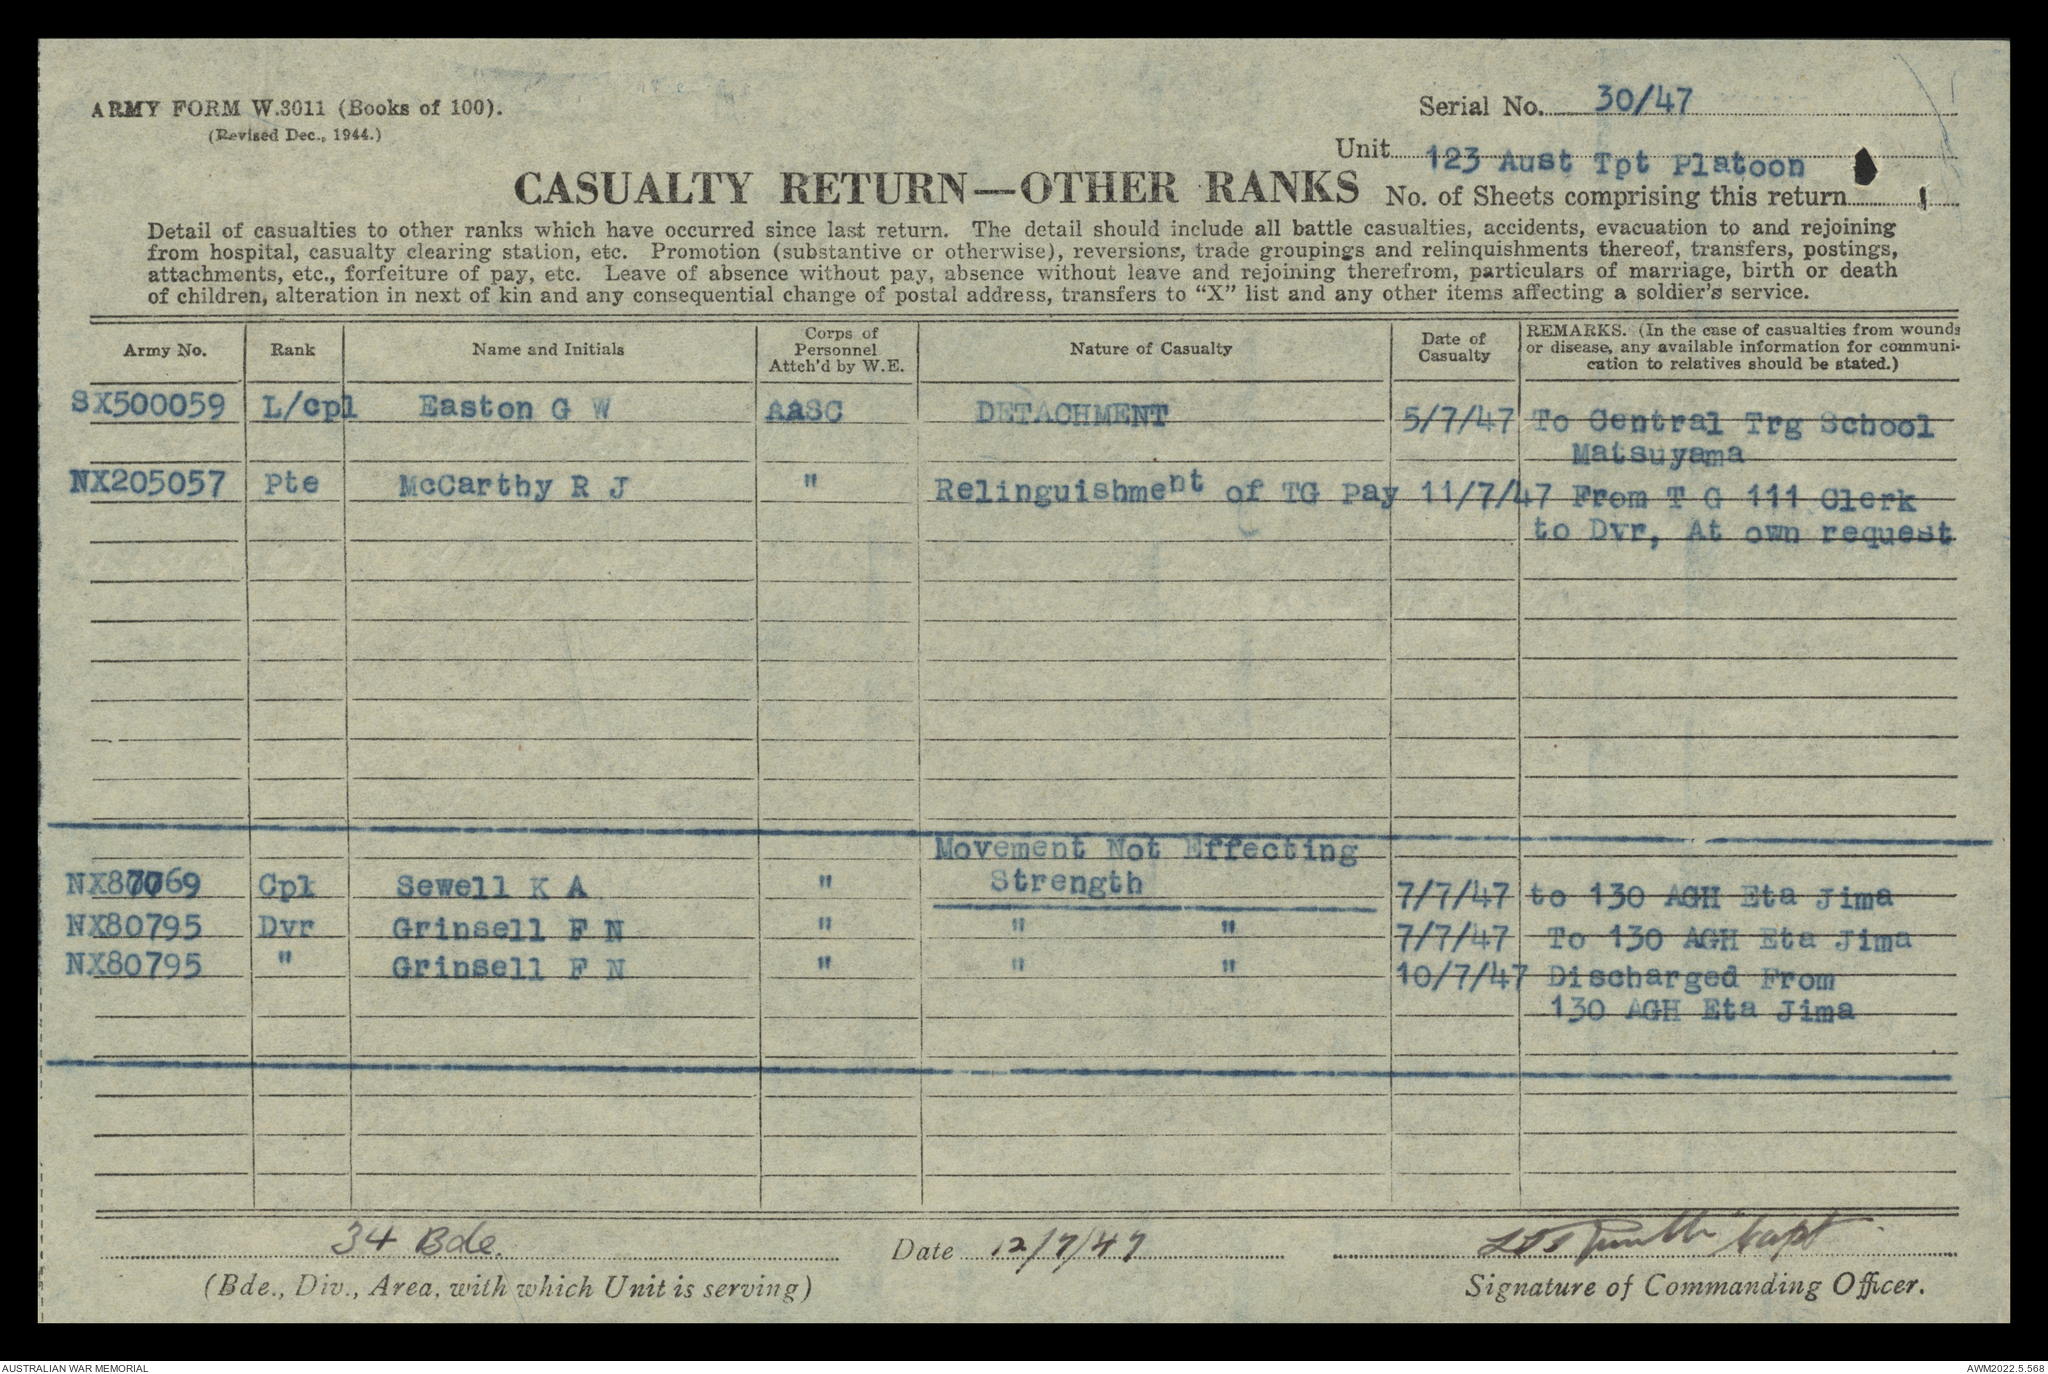 ARMY FORM W.3011 (Books of 100).
(Revised Dec., 1944.)
Serial No. 30/47
Unit 123 Aust Tpt Platoon
CASUALTY RETURN—OTHER RANKS
No. of Sheets comprising this return 1
Detail of casualties to other ranks which have occurred since last return. The detail should include all battle casualties, accidents, evacuation to and rejoining
from hospital, casualty clearing station, etc. Promotion (substantive or otherwise), reversions, trade groupings and relinquishments thereof, transfers, postings,
attachments, etc., forfeiture of pay, etc. Leave of absence without pay, absence without leave and rejoining therefrom, particulars of marriage, birth or death
of children, alteration in next of kin and any consequential change of postal address, transfers to “X” list and any other items affecting a soldier's service.
Army No. Rank Name and Initials Corps of Personnel Attch'd by W.E. Nature of Casualty Date of Casualty REMARKS. (In the case of casualties from wounds
or disease, any available information for communi-
cation to relatives should be stated.)
SX500059 L/cpl Easton G W AASC DETACHMENT 5/7/47 To Central Trg School
Matsuyama
NX205057 Pte McCarthy R J " Relinguishment of TG Pay 11/7/47 From T G 111 Clerk
to Dvr, At own request
Movement Not Effecting
Cpl Sewell K A " Strength 7/7/47 to 130 AGH Eta Jima
NX80795 Dvr Grinsell F N " " " 7/7/47 To 130 AGH Eta Jima
NX80795 " Grinsell F N " " " 10/7/47 Discharged From
130 AGH Eta Jima
34 Bde. Date 12/7/47 Capt
(Bde., Div., Area, with which Unit is serving) Signature of Commanding Officer.
AUSTRALIAN WAR MEMORIAL AWM2022.5.568